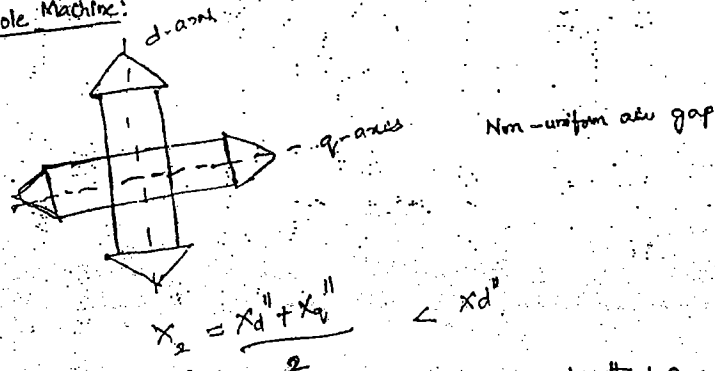 ole Machine:
d-axis
q-axis
Non-uniform air gap
X₂ = (Xd'' + Xq'') / 2 < Xd''